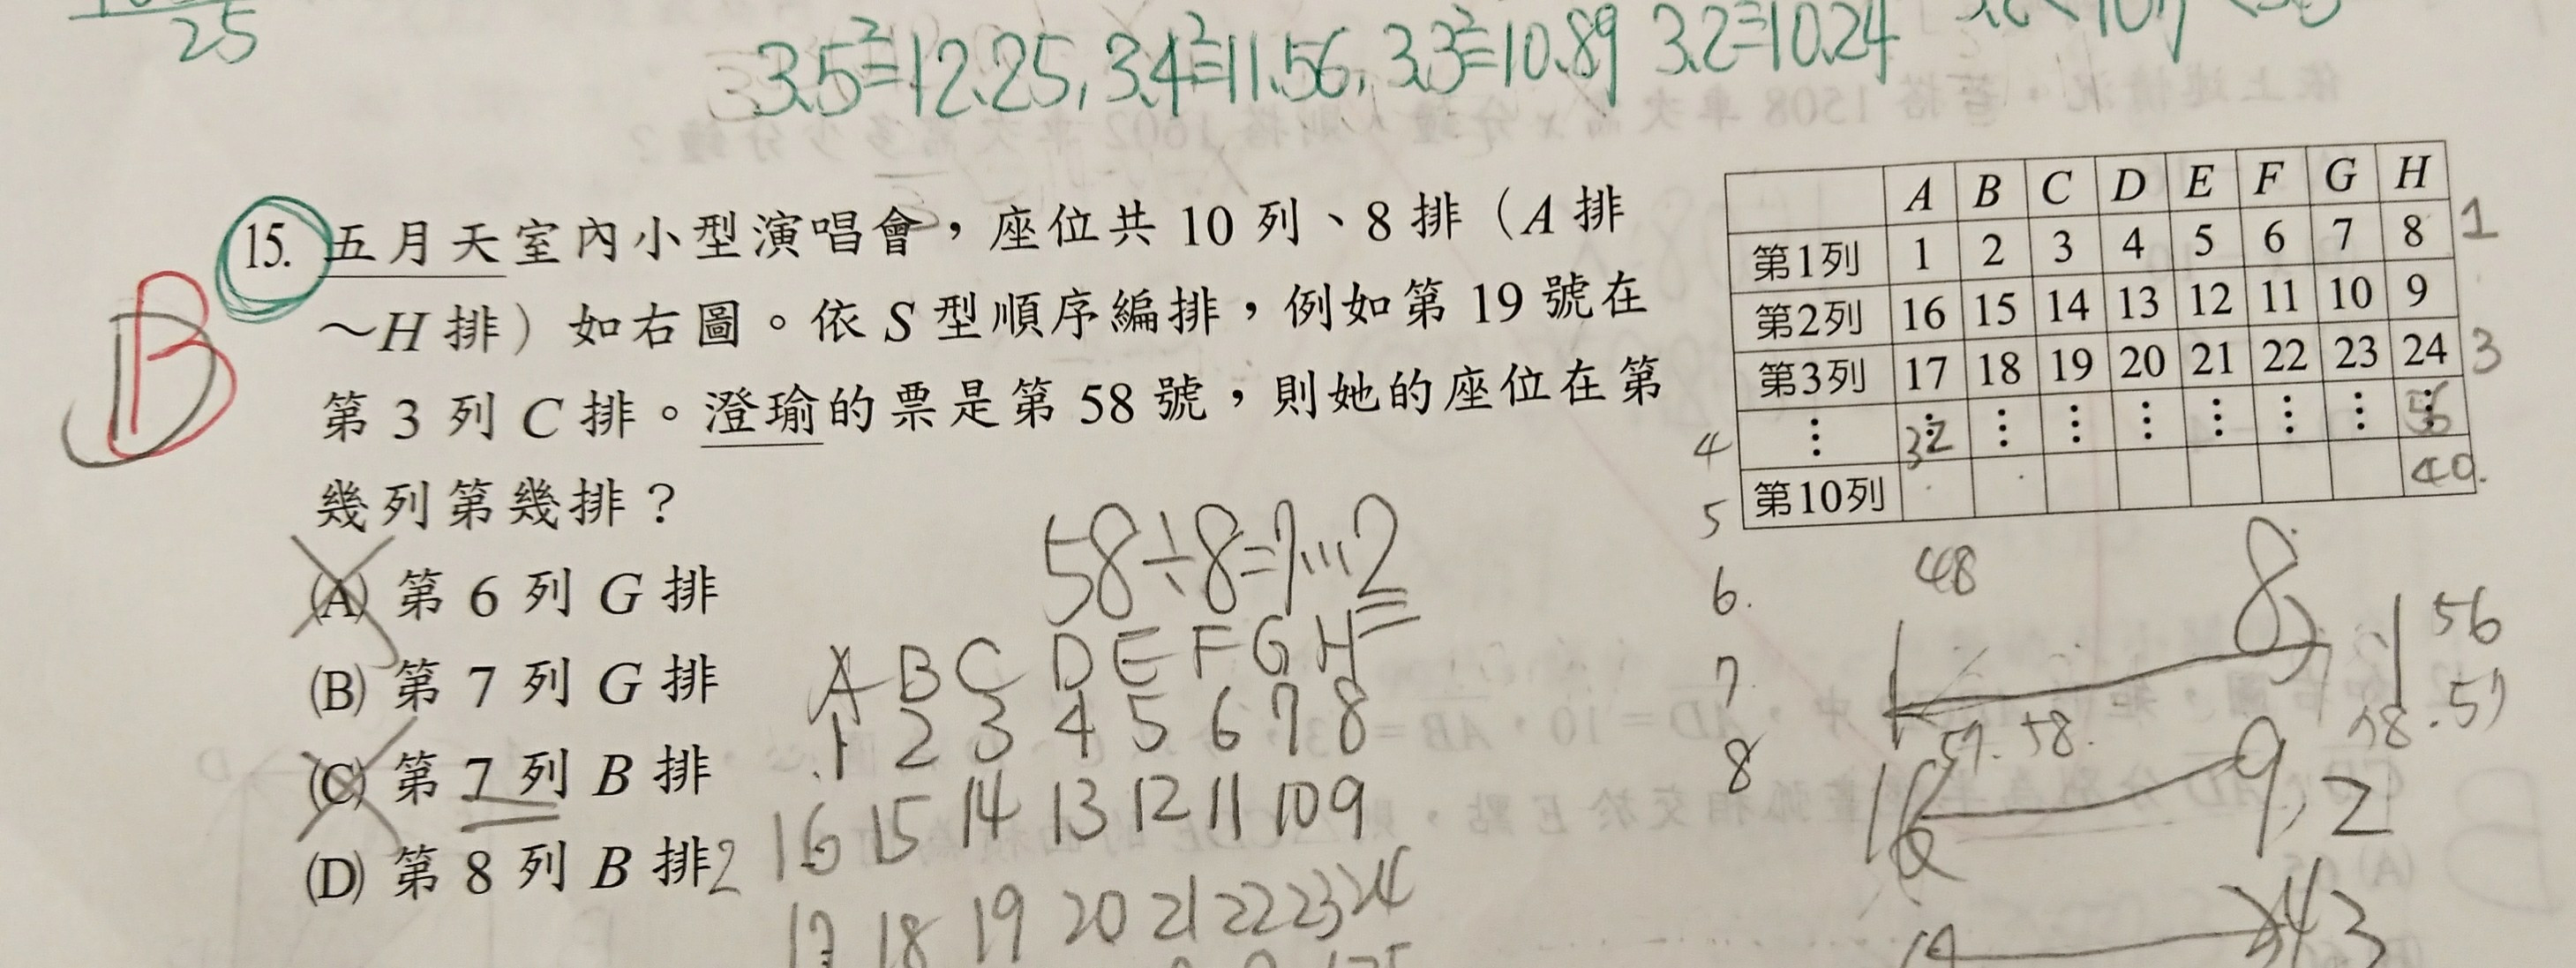 25
3.5²=12.25, 3.4²=11.56, 3.3²=10.89 3.2²=10.24
B
15. 五月天室內小型演唱會，座位共 10 列、8 排（A 排
～H 排）如右圖。依 S 型順序編排，例如第 19 號在
第 3 列 C 排。澄瑜的票是第 58 號，則她的座位在第
幾列第幾排？
(A) 第 6 列 G 排
(B) 第 7 列 G 排
(C) 第 7 列 B 排
(D) 第 8 列 B 排
A B C D E F G H
第1列 1 2 3 4 5 6 7 8 1
第2列 16 15 14 13 12 11 10 9
第3列 17 18 19 20 21 22 23 24 3
4 ⋮ 32 ⋮ ⋮ ⋮ ⋮ ⋮ ⋮ 56
5 第10列 40.
6.
7
8
58÷8=7…2
A B C D E F G H
1 2 3 4 5 6 7 8
2 16 15 14 13 12 11 10 9
17 18 19 20 21 22 23 24
48
1 8, 1 56
57. 58. 58.57
16 9, 2
24 3